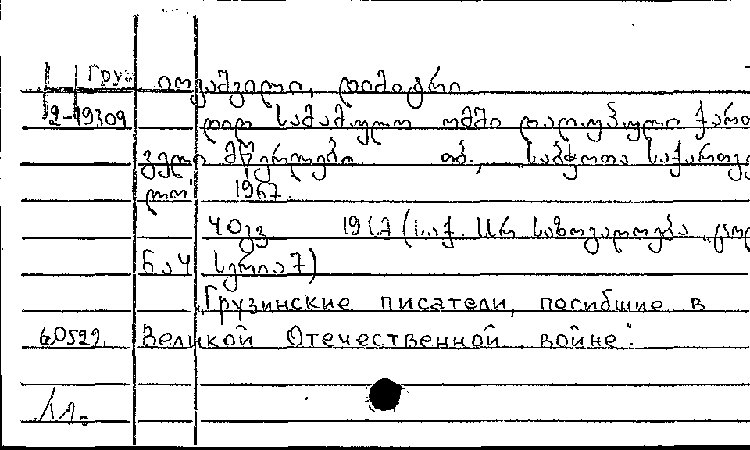 Груз იოვაშვილი, დიმიტრი
2-19309 დიდ სამამულო ომში დაღუპული ქართ
ველი მწერლები თბ., საბჭოთა საქართვე
ლო 1967.
40გვ 1967 (საქ. სსრ საზოგადოება „ცოდ
ნა" სერია 7)
Грузинские писатели, погибшие в
60529. Великой Отечественной войне".
11-